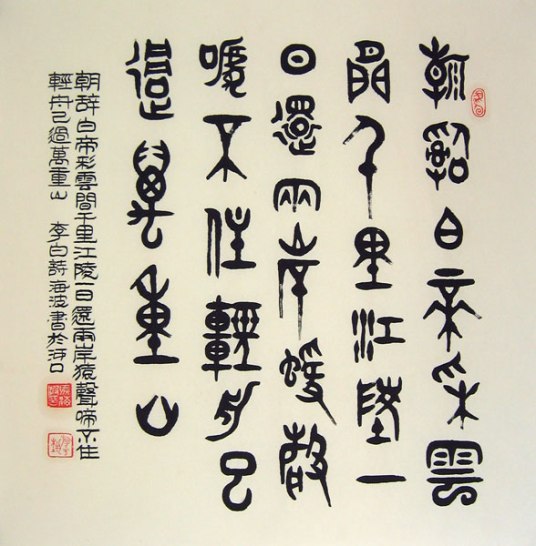 朝辭白帝采雲
間千里江陵一
日還兩岸猿聲
啼不住輕舟已
過萬重山
朝辞白帝彩雲間千里江陵一日還兩岸猿聲啼不住
輕舟已過萬重山 李白詩 海波書於河口